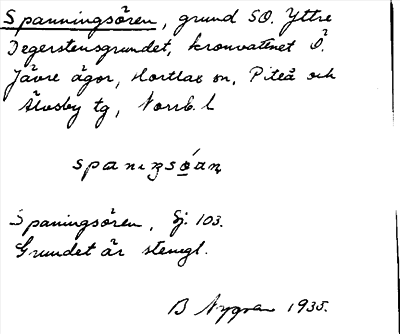 Spanningsören, grund SO. Yttre
Degerstensgrundet, kronvattnet Ö.
Jävre ägor, Hortlax sn, Piteå och
Älvsby tg, Norrb. l
spanɩŋsǿaɳ
Spaningsören, Sj. 103.
Grundet är stenigt.
B Nygren 1935.